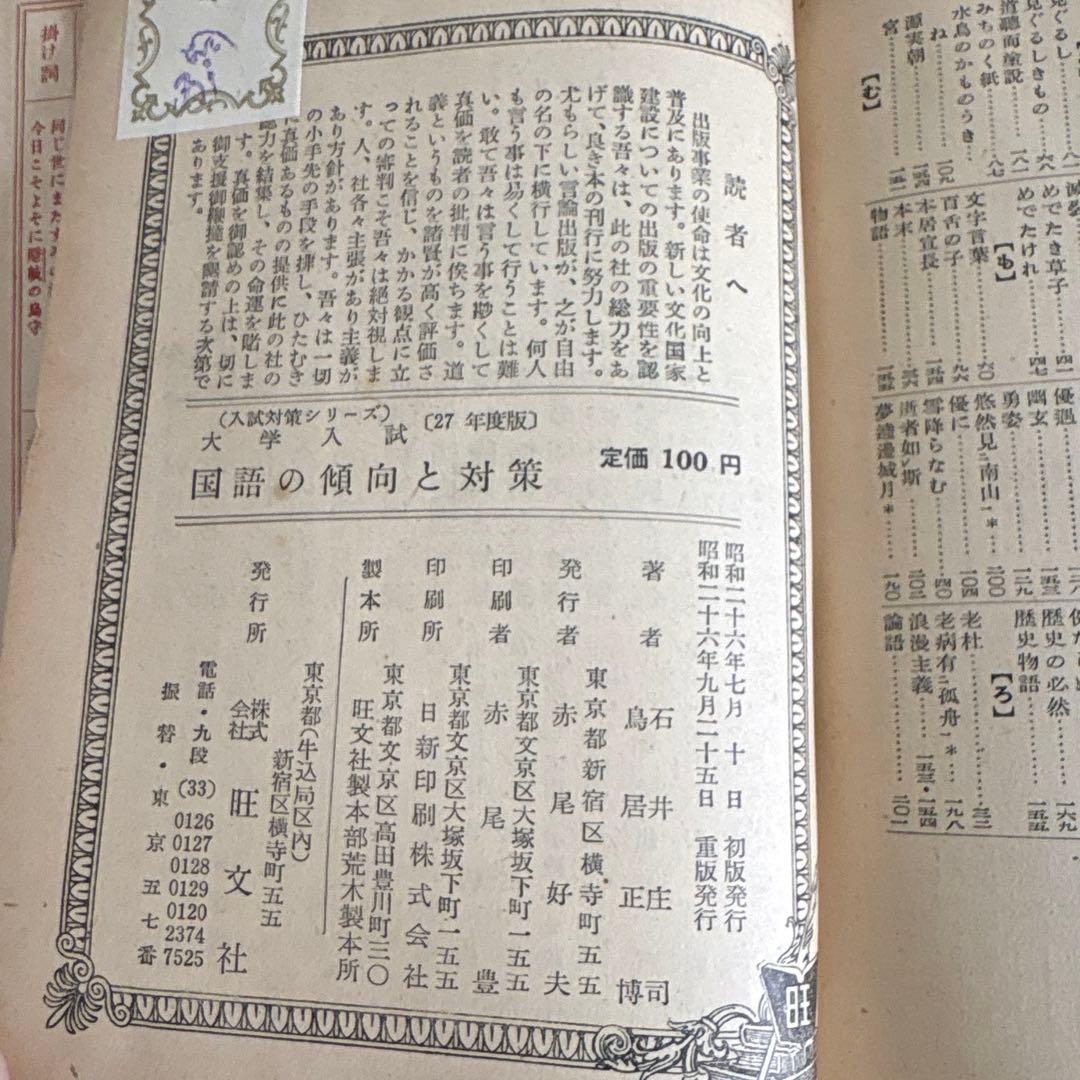 見ぐるし
見ぐるしきもの
道聴而塗説……一八一
みちのく紙……八七
水鳥のかものうき
ね……一〇九
源実朝……一五四
宮……一五一
【む】
めでたき草子……四七
めでたけれ
【も】
文字言葉……六〇
百舌の子……九六
本居宣長……一五四
本末……三六
物語……一五五
優遇
幽玄……一五三
勇姿……一二九
悠然見ニ南山一*……二〇〇
優に……一〇四
雪降らなむ……四〇
逝者如レ斯……二〇二
夢遶邊城月*……一九〇
歴史の必然……一六九
歴史物語……一五五
【ろ】
老杜……三二
老病有ニ孤舟一*……一九八
浪漫主義……一五三・一五四
論語……二〇一
読者へ
出版事業の使命は文化の向上と
普及にあります。新しい文化国家
建設についての出版の重要性を認
識する吾々は、此の社の総力をあ
げて、良き本の刊行に努力します。
尤もらしい言論出版が、之が自由
の名の下に横行しています。何人
も言う事は易くして行うことは難
い。敢て吾々は言う事を尠くして
真価を読者の批判に俟ちます。道
義というものを諸賢が高く評価さ
れることを信じ、かかる観点に立
っての審判こそ吾々は絶対視しま
す。人、社各々主張があり主義が
あり方針があります。吾々は一切
の小手先の手段を排し、ひたむき
に真価あるものの提供に此の社の
力を結集し、その命運を賭しま
す。真価を御認めの上は、切に
御支援御鞭撻を懇請する次第で
あります。
(入試対策シリーズ) 〔27 年度版〕
大学入試
国語の傾向と対策
定価 100 円
昭和二十六年七月十日 初版発行
昭和二十六年九月二十五日 重版発行
著者 石井庄司
鳥居正博
東京都新宿区横寺町五五
発行者 赤尾好夫
東京都文京区大塚坂下町一五五
印刷者 赤尾豊
東京都文京区大塚坂下町一五五
印刷所 日新印刷株式会社
東京都文京区高田豊川町三〇
製本所 旺文社製本部荒木製本所
東京都(牛込局区内)
新宿区横寺町五五
発行所 株式会社 旺文社
電話・九段(33) 0126 0127 0128 0129 0120 2374 7525
振替・東京五七番
旺
掛け詞
同じ世にまた
今日こそよそに隠岐の島守